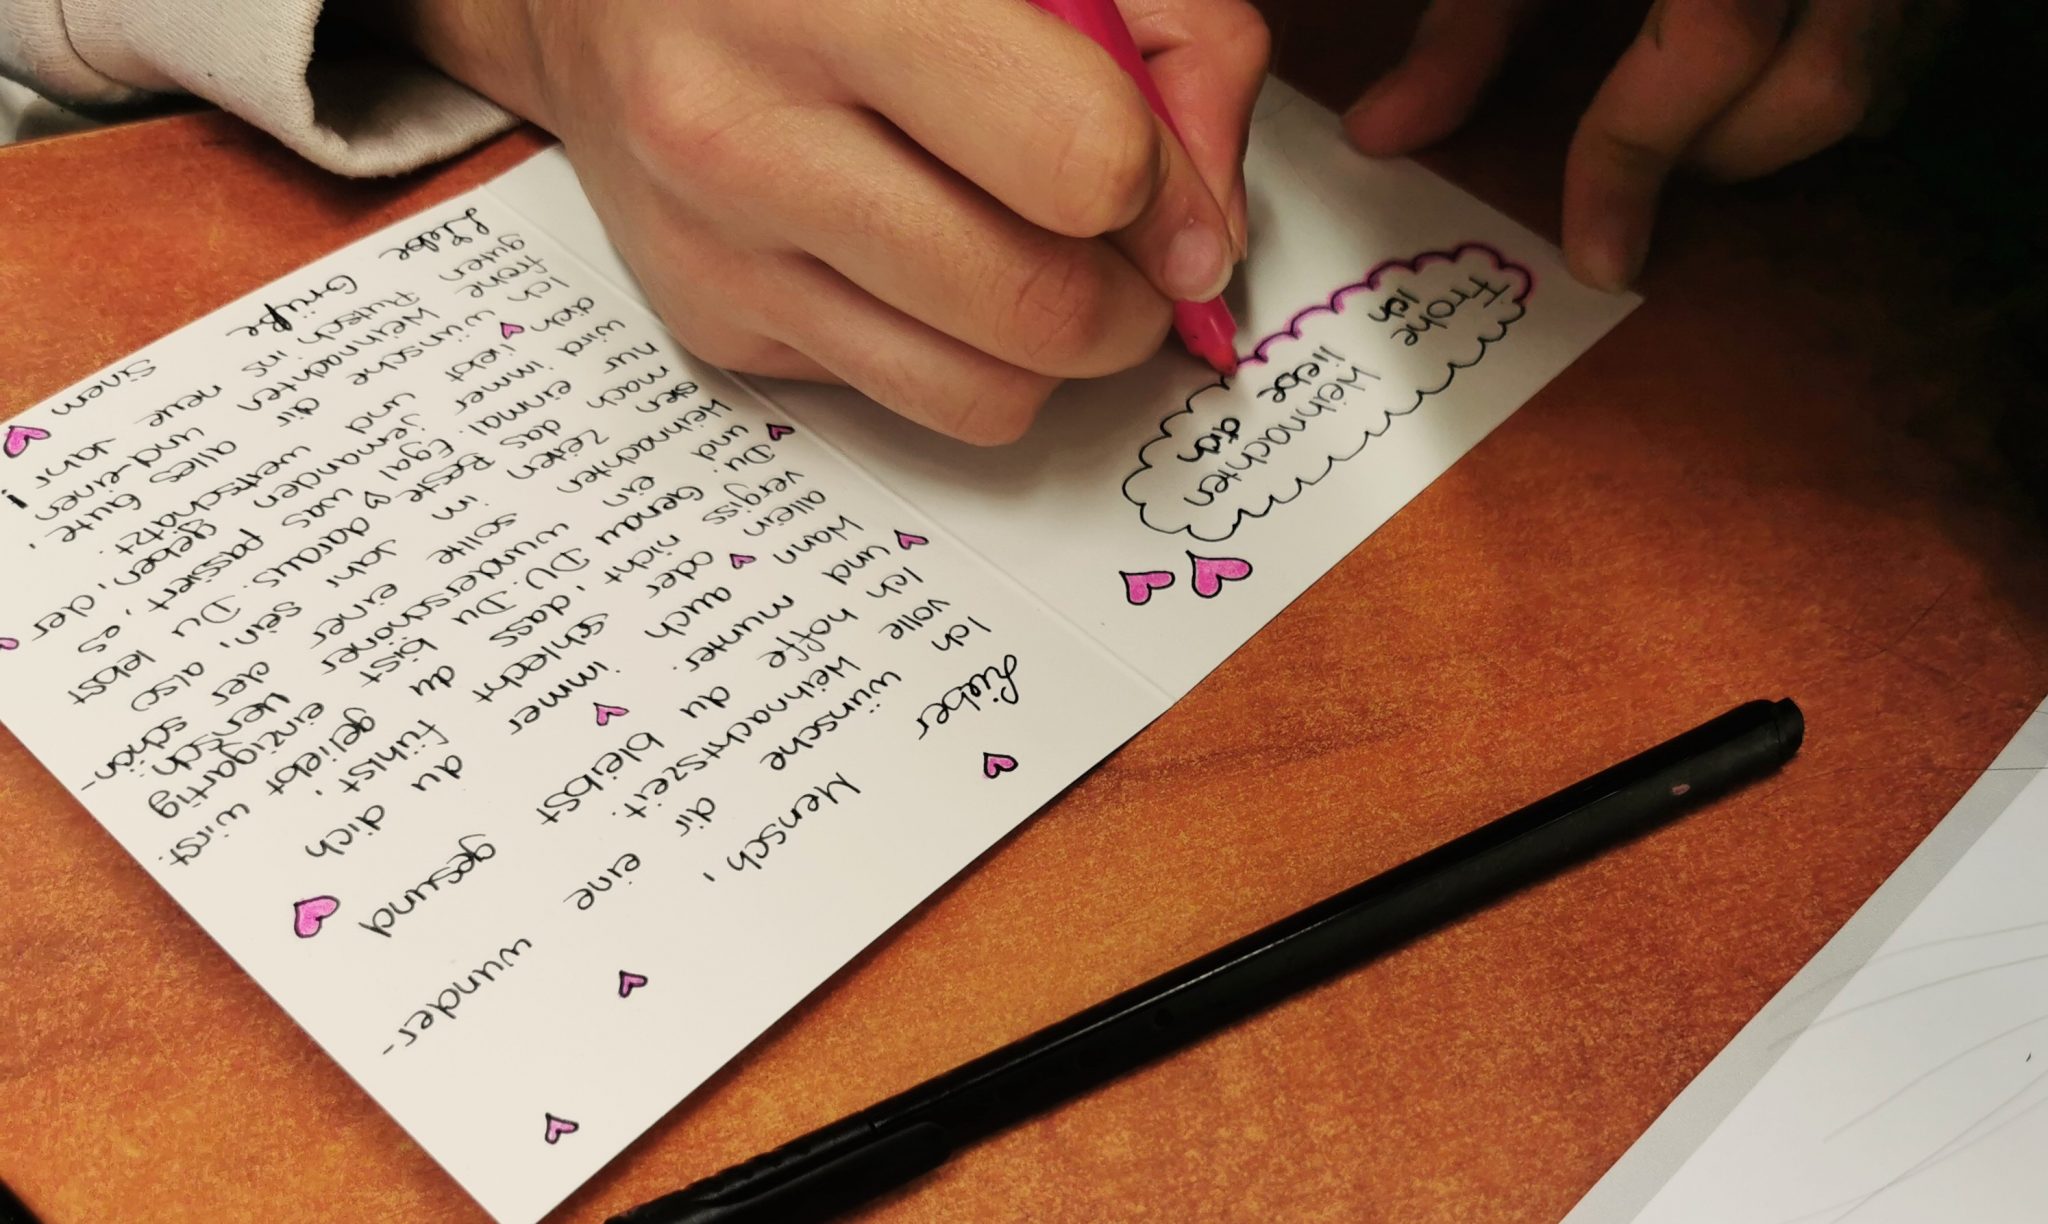 Frohe Weihnachten
Ich liebe dich
Lieber Mensch,
Ich wünsche dir eine wunder-
volle Weihnachtszeit.
Ich hoffe du bleibst gesund
und munter.
Wann auch immer du dich
allein oder schlecht fühlst,
vergiss nicht, dass du geliebt wirst.
Du. Genau DU. Du bist einzigartig
und ein wunderschöner Mensch.
Weihnachten sollte einer der schön-
sten Zeiten im Jahr sein, also
mach das Beste daraus. Du lebst
nur einmal. Egal was passiert, es
wird immer jemanden geben, der
dich liebt und wertschätzt.
Ich wünsche dir alles Gute,
frohe Weihnachten und einen
guten Rutsch ins neue Jahr!
Liebe Grüße Sinem